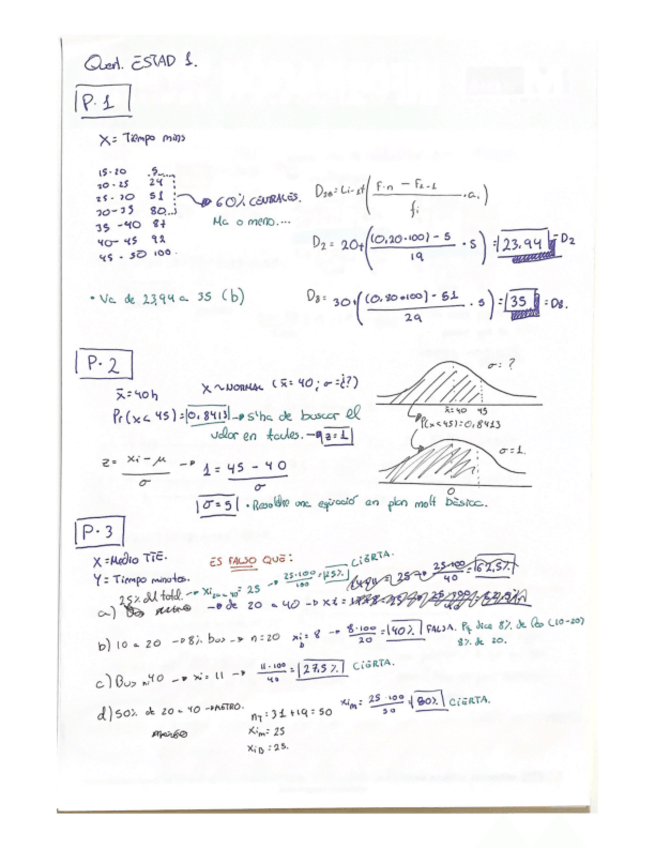 Qüest. ESTAD 1.
P.1
X = Tiempo mins
15-20 5
20-25 24
25-30 51
30-35 80
35-40 87
40-45 92
45-50 100
60% CENTRALES.
Ma o meno....
fi
D2 = 20+((0,20·100) - 5 / 19 · 5) = 23,94 = D2
• Va de 23,94 a 35 (b)
D8 = 30+((0,80·100) - 51 / 29 · 5) = 35 = D8.
P.2
x̄ = 40h
X ~ NORMAL (x̄ = 40; σ = ¿?)
σ = ?
x̄=40 45
Pr(x < 45) = 0,8413 → s'ha de buscar el
valor en taules. → z = 1
P(x<45)=0,8413
σ = 1.
0
z = xi - μ / σ → 1 = 45 - 40 / σ
σ = 5 • Resoldre una equació en plan molt bàsica.
P.3
X = Medio TTE.
Y = Tiempo minutos.
ES FALSO QUE:
25% del total → = 25 → 25·100 = 25% CIERTA.
25·100 / 40 = 62,5%
a) → de 20 a 40 →
b) 10 a 20 → 8% bus → n=20 xi = 8 → 8·100 / 20 = 40% FALSA. Pq dice 8% de (10-20)
8% de 20.
c) Bus 40 → xi = 11 → 11·100 / 40 = 27,5% CIERTA.
d) 50% de 20 a 40 → METRO.
nT = 31 + 19 = 50
xim = 25·100 / 50 = 50% CIERTA.
xim = 25
xiB = 25.